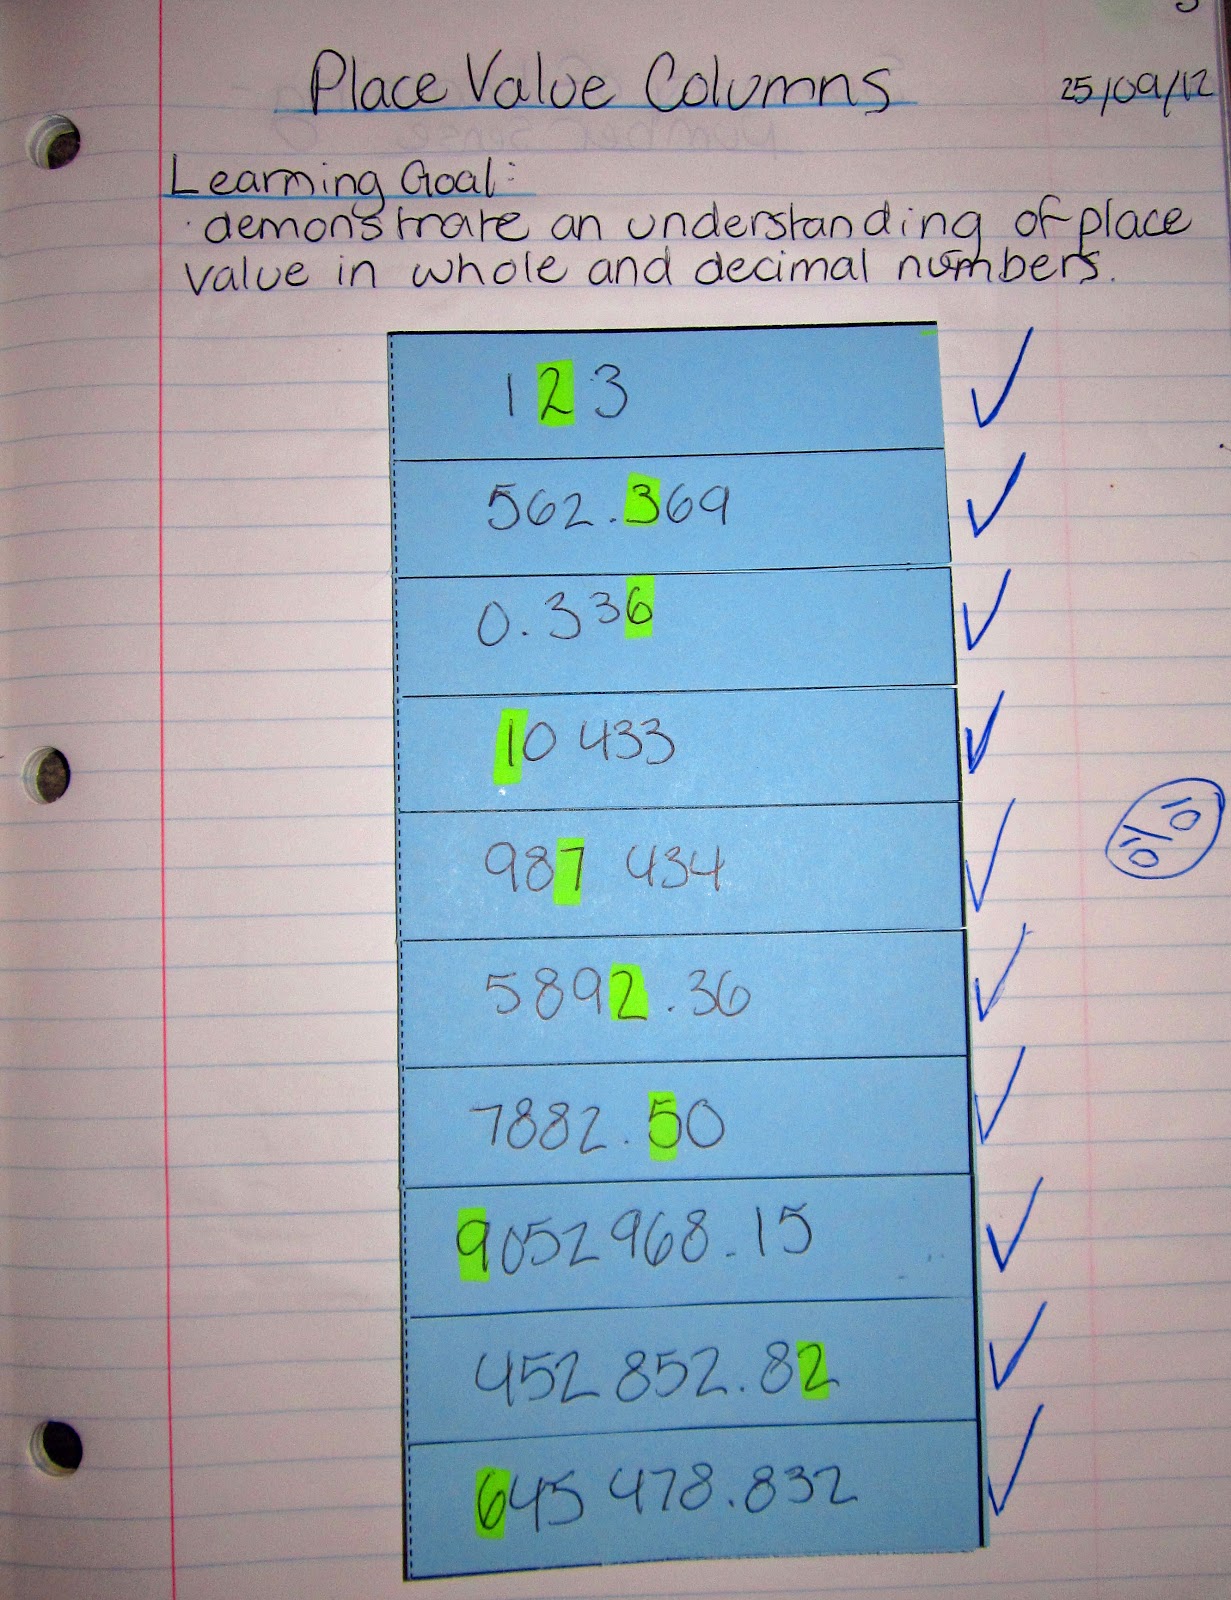 Place Value Columns 25/09/12
Learning Goal:
· demonstrate an understanding of place
value in whole and decimal numbers.
123
562.369
0.336
10 433
987 434
5892.36
10/10
7882.50
9052 968.15
452 852.82
645 478.832